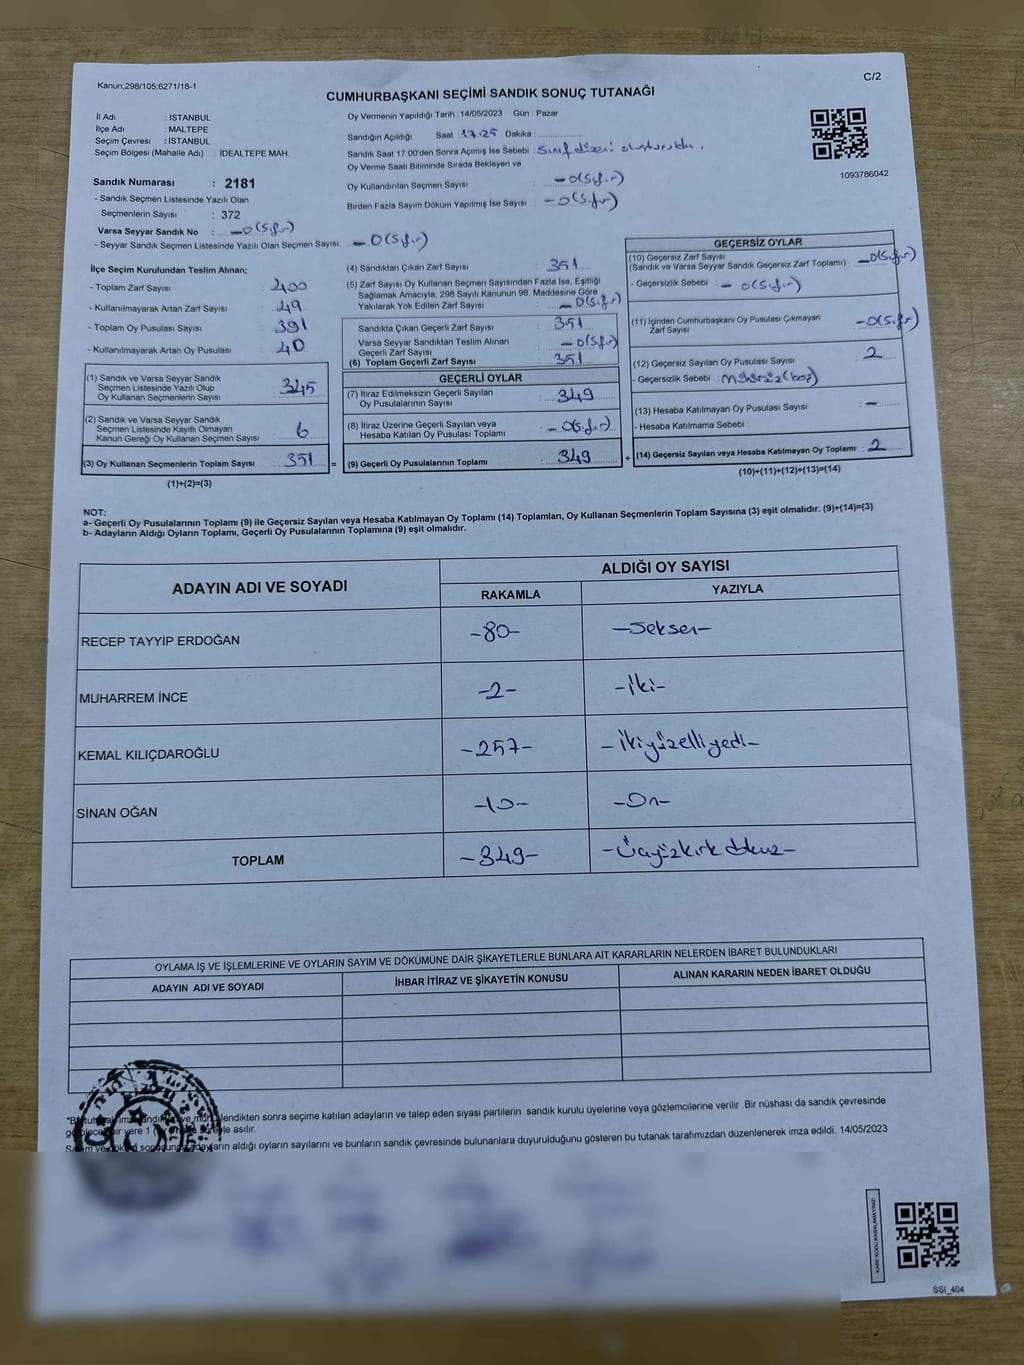 Kanun;298/105,6271/18-1
C/2
CUMHURBAŞKANI SEÇİMİ SANDIK SONUÇ TUTANAĞI
İl Adı : İSTANBUL
İlçe Adı : MALTEPE
Seçim Çevresi : İSTANBUL
Seçim Bölgesi (Mahalle Adı) : İDEALTEPE MAH.
Sandık Numarası : 2181
- Sandık Seçmen Listesinde Yazılı Olan
Seçmenlerin Sayısı : 372
Varsa Seyyar Sandık No : -0(Sıfır)
- Seyyar Sandık Seçmen Listesinde Yazılı Olan Seçmen Sayısı: -0(Sıfır)
Oy Vermenin Yapıldığı Tarih :14/05/2023 Gün : Pazar
Sandığın Açıldığı Saat :17.25 Dakika :
Sandık Saat 17:00'den Sonra Açımış İse Sebebi : Sınıf düzeni oluşturuldu.
Oy Verme Saati Bitiminde Sırada Bekleyen ve
Oy Kullandırılan Seçmen Sayısı : -0(Sıfır)
Birden Fazla Sayım Döküm Yapılmış İse Sayısı : -0(Sıfır)
1093786042
İlçe Seçim Kurulundan Teslim Alınan;
- Toplam Zarf Sayısı : 400
- Kullanılmayarak Artan Zarf Sayısı : 49
- Toplam Oy Pusulası Sayısı : 391
- Kullanılmayarak Artan Oy Pusulası : 40
(1) Sandık ve Varsa Seyyar Sandık
Seçmen Listesinde Yazılı Olup
Oy Kullanan Seçmenlerin Sayısı : 345
(2) Sandık ve Varsa Seyyar Sandık
Seçmen Listesinde Kayıtlı Olmayan
Kanun Gereği Oy Kullanan Seçmen Sayısı : 6
(3) Oy Kullanan Seçmenlerin Toplam Sayısı : 351 =
(1)+(2)=(3)
(4) Sandıktan Çıkan Zarf Sayısı : 351
(5) Zarf Sayısı Oy Kullanan Seçmen Sayısından Fazla İse, Eşitliği
Sağlamak Amacıyla, 298 Sayılı Kanunun 98. Maddesine Göre
Yakılarak Yok Edilen Zarf Sayısı : -0(Sıfır)
Sandıkta Çıkan Geçerli Zarf Sayısı : 351
Varsa Seyyar Sandıktan Teslim Alınan
Geçerli Zarf Sayısı : -0(Sıfır)
(6) Toplam Geçerli Zarf Sayısı : 351
GEÇERLİ OYLAR
(7) İtiraz Edilmeksizin Geçerli Sayılan
Oy Pusulalarının Sayısı : 349
(8) İtiraz Üzerine Geçerli Sayılan veya
Hesaba Katılan Oy Pusulası Toplamı : -0(Sıfır)
(9) Geçerli Oy Pusulalarının Toplamı : 349 +
GEÇERSİZ OYLAR
(10) Geçersiz Zarf Sayısı
(Sandık ve Varsa Seyyar Sandık Geçersiz Zarf Toplamı) : -0(Sıfır)
- Geçersizlik Sebebi : - 0(Sıfır)
(11) İçinden Cumhurbaşkanı Oy Pusulası Çıkmayan
Zarf Sayısı : -0(Sıfır)
(12) Geçersiz Sayılan Oy Pusulası Sayısı : 2
- Geçersizlik Sebebi : Mühürsüz(boş)
(13) Hesaba Katılmayan Oy Pusulası Sayısı : -
- Hesaba Katılmama Sebebi :
(14) Geçersiz Sayılan veya Hesaba Katılmayan Oy Toplamı : 2
(10)+(11)+(12)+(13)=(14)
NOT:
a- Geçerli Oy Pusulalarının Toplamı (9) ile Geçersiz Sayılan veya Hesaba Katılmayan Oy Toplamı (14) Toplamları, Oy Kullanan Seçmenlerin Toplam Sayısına (3) eşit olmalıdır. (9)+(14)=(3)
b- Adayların Aldığı Oyların Toplamı, Geçerli Oy Pusulalarının Toplamına (9) eşit olmalıdır.
ADAYIN ADI VE SOYADI
ALDIĞI OY SAYISI
RAKAMLA YAZIYLA
RECEP TAYYİP ERDOĞAN -80- -Seksen-
MUHARREM İNCE -2- -İki-
KEMAL KILIÇDAROĞLU -257- -İkiyüzelliyedi-
SİNAN OĞAN -10- -On-
TOPLAM -349- -Üçyüzkırkdokuz-
OYLAMA İŞ VE İŞLEMLERİNE VE OYLARIN SAYIM VE DÖKÜMÜNE DAİR ŞİKAYETLERLE BUNLARA AİT KARARLARIN NELERDEN İBARET BULUNDUKLARI
ADAYIN ADI VE SOYADI İHBAR İTİRAZ VE ŞİKAYETİN KONUSU ALINAN KARARIN NEDEN İBARET OLDUĞU
sonra seçime katılan adayların ve talep eden siyasi partilerin sandık kurulu üyelerine veya gözlemcilerine verilir .Bir nüshası da sandık çevresinde
yere 1 asılır.
aldığı oyların sayılarını ve bunların sandık çevresinde bulunanlara duyurulduğunu gösteren bu tutanak tarafımızdan düzenlenerek imza edildi. 14/05/2023
KARE KODU KARALAMAYINIZ!
SSİ_404